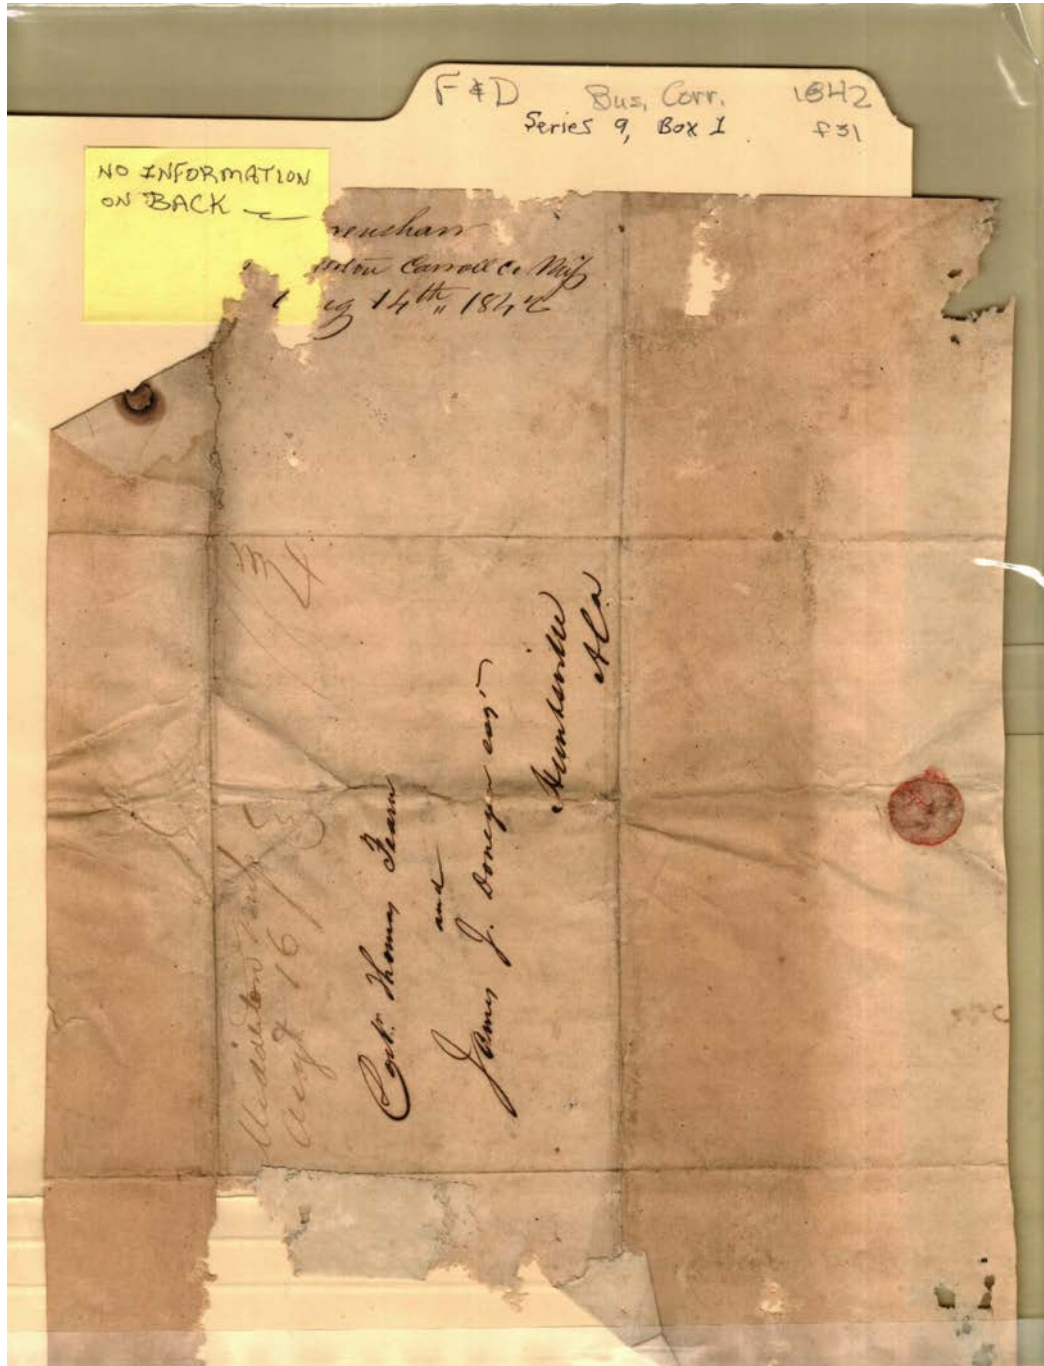 F & D Bus, Corr. 1842
Series 9, Box 1 f31
NO INFORMATION
ON BACK
renshaw
Carroll Co Miſ
14th 1842
Middleton Miſ
Augt 16
Thomas Fearn
and
James J. Donegan esqr
Huntsville
Ala